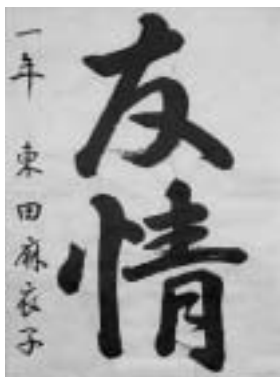 友情
一年 東田麻衣子